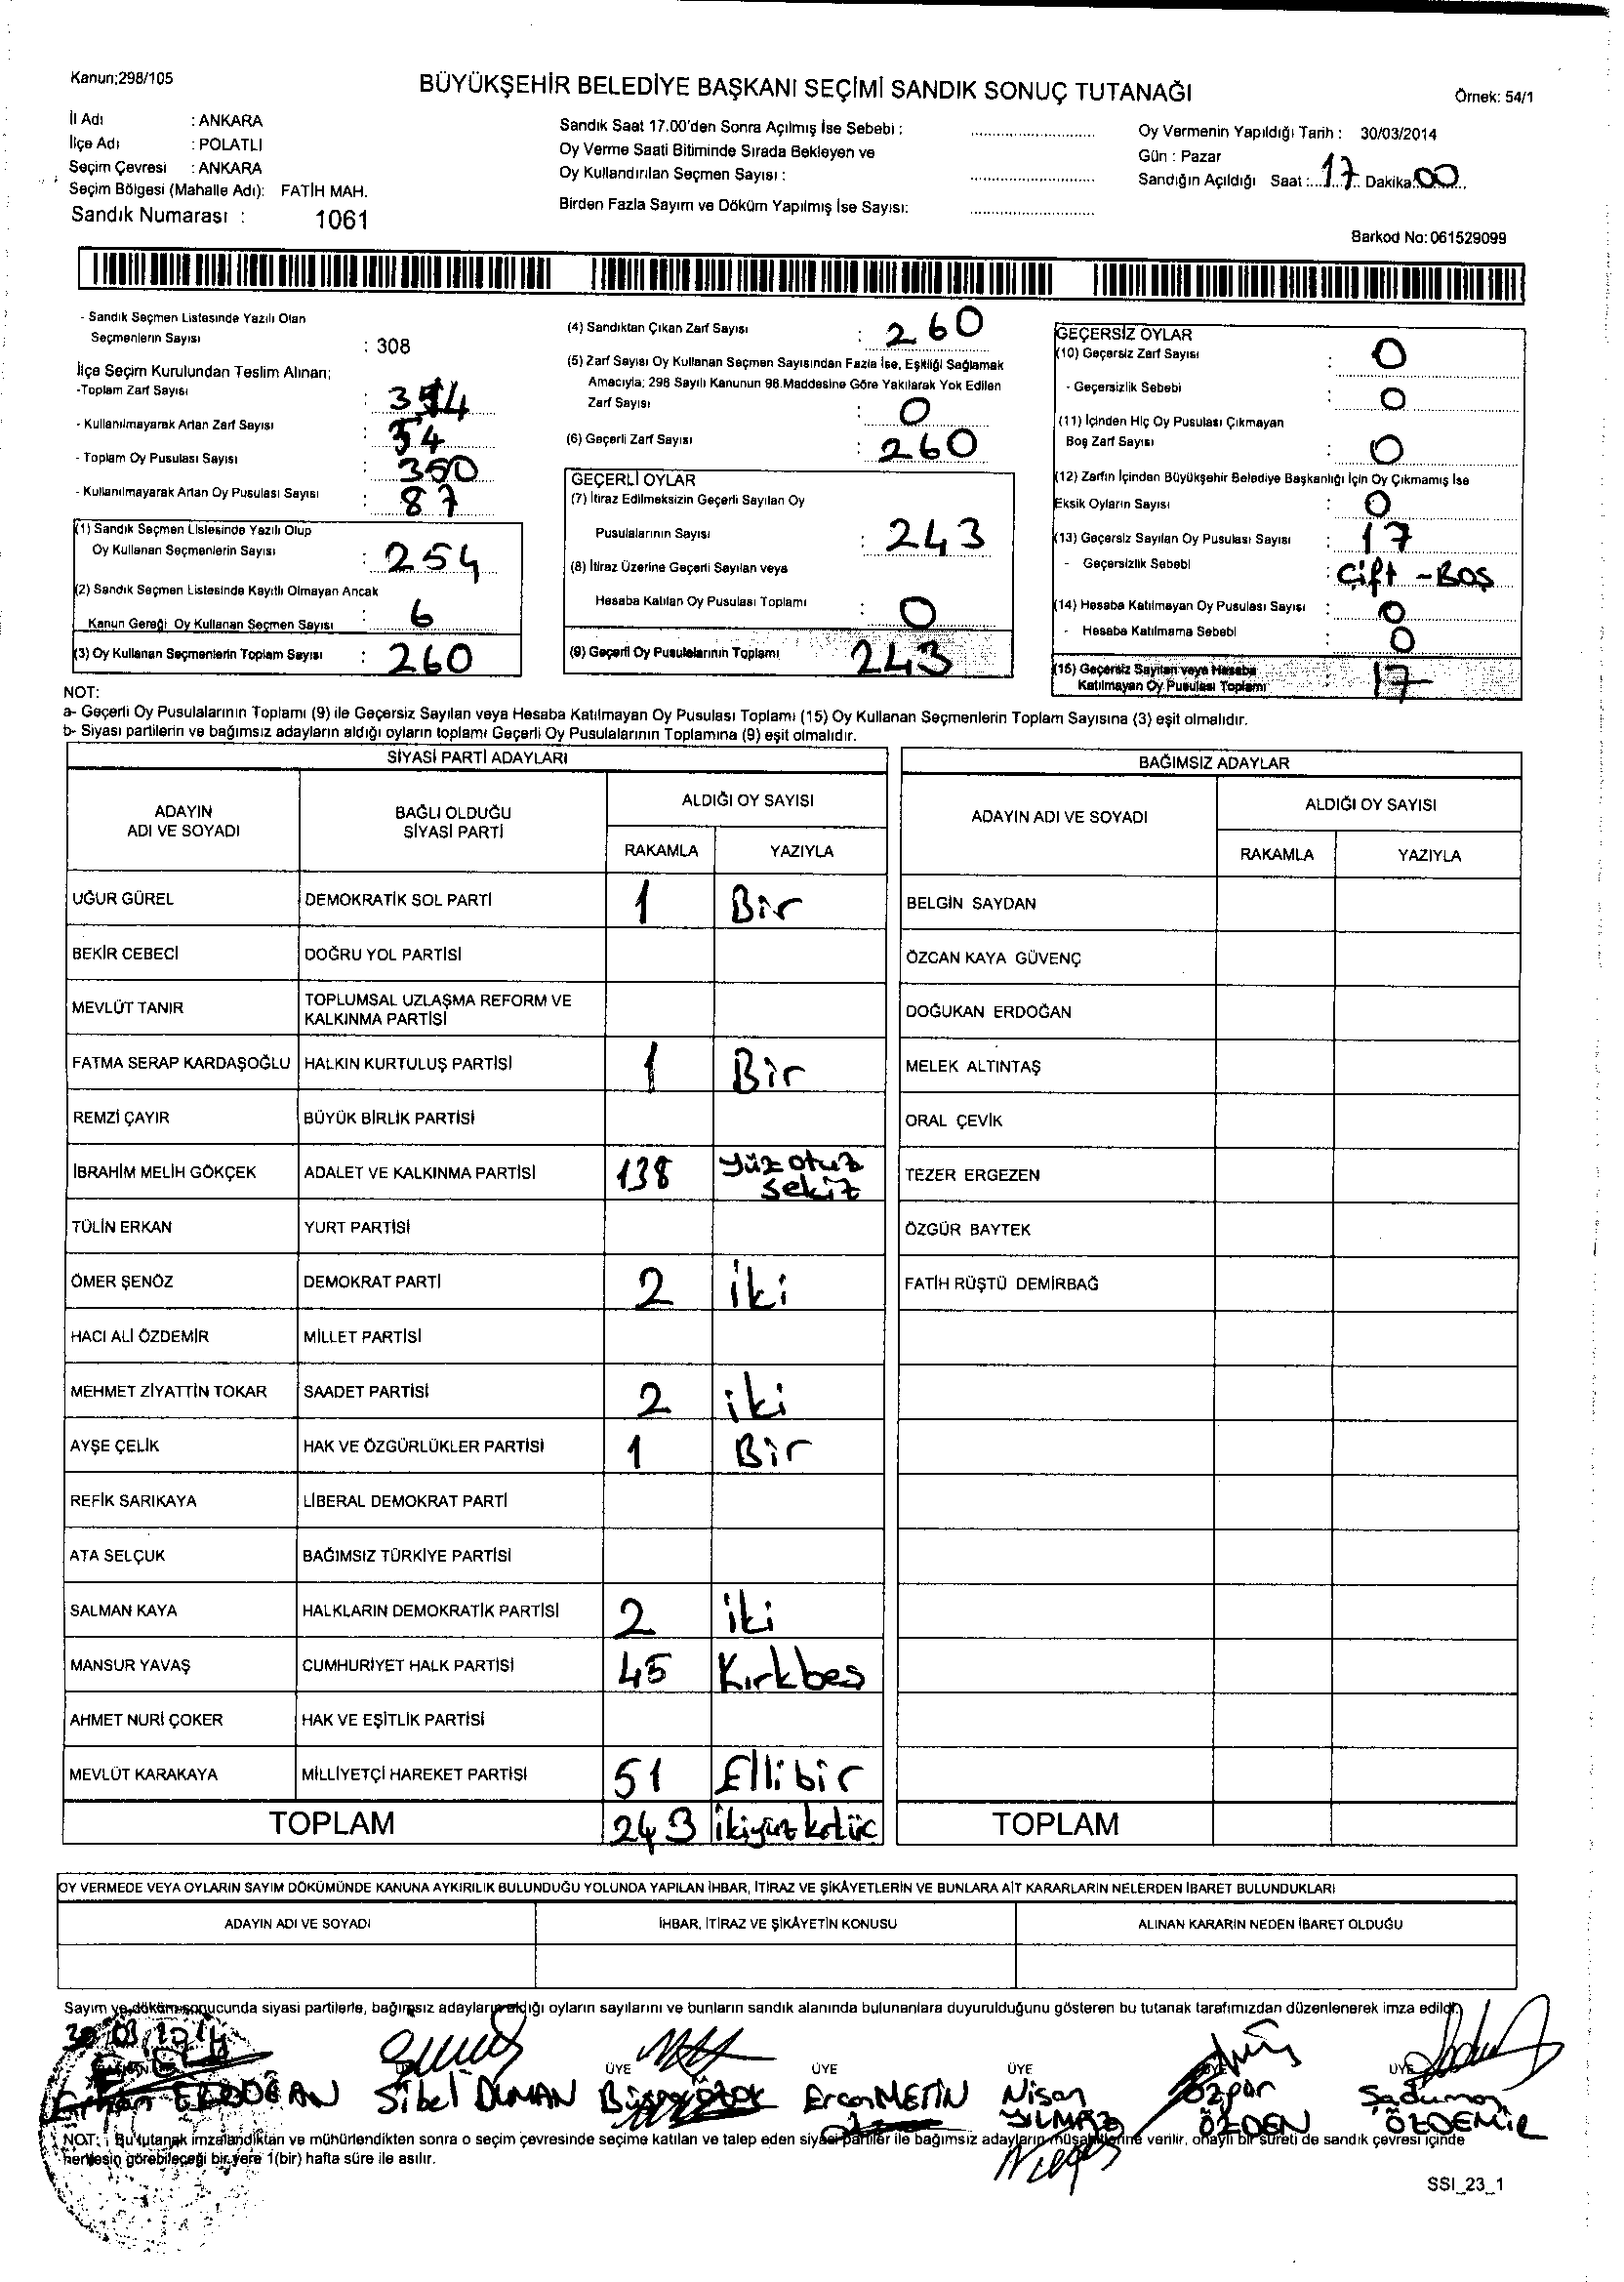 Kanun;298/105
BÜYÜKŞEHİR BELEDİYE BAŞKANI SEÇİMİ SANDIK SONUÇ TUTANAĞI
Örnek: 54/1
İl Adı : ANKARA
İlçe Adı : POLATLI
Seçim Çevresi : ANKARA
Seçim Bölgesi (Mahalle Adı): FATİH MAH.
Sandık Numarası : 1061
Sandık Saat 17.00'den Sonra Açılmış İse Sebebi :
Oy Verme Saati Bitiminde Sırada Bekleyen ve
Oy Kullandırılan Seçmen Sayısı :
Birden Fazla Sayım ve Döküm Yapılmış İse Sayısı:
Oy Vermenin Yapıldığı Tarih : 30/03/2014
Gün : Pazar
Sandığın Açıldığı Saat : 17 Dakika 00
Barkod No: 061529099
- Sandık Seçmen Listesinde Yazılı Olan
Seçmenlerin Sayısı : 308
İlçe Seçim Kurulundan Teslim Alınan;
-Toplam Zarf Sayısı :
- Kullanılmayarak Artan Zarf Sayısı : 54
- Toplam Oy Pusulası Sayısı : 350
- Kullanılmayarak Artan Oy Pusulası Sayısı : 87
(1) Sandık Seçmen Listesinde Yazılı Olup
Oy Kullanan Seçmenlerin Sayısı : 254
(2) Sandık Seçmen Listesinde Kayıtlı Olmayan Ancak
Kanun Gereği Oy Kullanan Seçmen Sayısı : 6
(3) Oy Kullanan Seçmenlerin Toplam Sayısı : 260
(4) Sandıktan Çıkan Zarf Sayısı : 260
(5) Zarf Sayısı Oy Kullanan Seçmen Sayısından Fazla İse, Eşitliği Sağlamak
Amacıyla; 298 Sayılı Kanunun 98.Maddesine Göre Yakılarak Yok Edilen
Zarf Sayısı : 0
(6) Geçerli Zarf Sayısı : 260
GEÇERLİ OYLAR
(7) İtiraz Edilmeksizin Geçerli Sayılan Oy
Pusulalarının Sayısı : 243
(8) İtiraz Üzerine Geçerli Sayılan veya
Hesaba Katılan Oy Pusulası Toplamı : 0
(9) Geçerli Oy Pusulalarının Toplamı 243
GEÇERSİZ OYLAR
(10) Geçersiz Zarf Sayısı : 0
- Geçersizlik Sebebi : 0
(11) İçinden Hiç Oy Pusulası Çıkmayan
Boş Zarf Sayısı : 0
(12) Zarfın İçinden Büyükşehir Belediye Başkanlığı İçin Oy Çıkmamış İse
Eksik Oyların Sayısı : 0
(13) Geçersiz Sayılan Oy Pusulası Sayısı : 17
- Geçersizlik Sebebi : Çift - Boş
(14) Hesaba Katılmayan Oy Pusulası Sayısı : 0
- Hesaba Katılmama Sebebi : 0
(15) Geçersiz Sayılan veya Hesaba
Katılmayan Oy Pusulası Toplamı : 17
NOT:
a- Geçerli Oy Pusulalarının Toplamı (9) ile Geçersiz Sayılan veya Hesaba Katılmayan Oy Pusulası Toplamı (15) Oy Kullanan Seçmenlerin Toplam Sayısına (3) eşit olmalıdır.
b- Siyasi partilerin ve bağımsız adayların aldığı oyların toplamı Geçerli Oy Pusulalarının Toplamına (9) eşit olmalıdır.
SİYASİ PARTİ ADAYLARI
ADAYIN
ADI VE SOYADI
BAĞLI OLDUĞU
SİYASİ PARTİ
ALDIĞI OY SAYISI
RAKAMLA YAZIYLA
UĞUR GÜREL DEMOKRATİK SOL PARTİ 1 Bir
BEKİR CEBECİ DOĞRU YOL PARTİSİ
MEVLÜT TANIR TOPLUMSAL UZLAŞMA REFORM VE
KALKINMA PARTİSİ
FATMA SERAP KARDAŞOĞLU HALKIN KURTULUŞ PARTİSİ 1 Bir
REMZİ ÇAYIR BÜYÜK BİRLİK PARTİSİ
İBRAHİM MELİH GÖKÇEK ADALET VE KALKINMA PARTİSİ 138 yüz otuz
sekiz
TÜLİN ERKAN YURT PARTİSİ
ÖMER ŞENÖZ DEMOKRAT PARTİ 2 iki
HACI ALİ ÖZDEMİR MİLLET PARTİSİ
MEHMET ZİYATTİN TOKAR SAADET PARTİSİ 2 iki
AYŞE ÇELİK HAK VE ÖZGÜRLÜKLER PARTİSİ 1 Bir
REFİK SARIKAYA LİBERAL DEMOKRAT PARTİ
ATA SELÇUK BAĞIMSIZ TÜRKİYE PARTİSİ
SALMAN KAYA HALKLARIN DEMOKRATİK PARTİSİ 2 iki
MANSUR YAVAŞ CUMHURİYET HALK PARTİSİ 45 Kırkbeş
AHMET NURİ ÇOKER HAK VE EŞİTLİK PARTİSİ
MEVLÜT KARAKAYA MİLLİYETÇİ HAREKET PARTİSİ 51 Ellibir
TOPLAM 243
BAĞIMSIZ ADAYLAR
ADAYIN ADI VE SOYADI
ALDIĞI OY SAYISI
RAKAMLA YAZIYLA
BELGİN SAYDAN
ÖZCAN KAYA GÜVENÇ
DOĞUKAN ERDOĞAN
MELEK ALTINTAŞ
ORAL ÇEVİK
TEZER ERGEZEN
ÖZGÜR BAYTEK
FATİH RÜŞTÜ DEMİRBAĞ
TOPLAM
OY VERMEDE VEYA OYLARIN SAYIM DÖKÜMÜNDE KANUNA AYKIRILIK BULUNDUĞU YOLUNDA YAPILAN İHBAR, İTİRAZ VE ŞİKÂYETLERİN VE BUNLARA AİT KARARLARIN NELERDEN İBARET BULUNDUKLARI
ADAYIN ADI VE SOYADI İHBAR, İTİRAZ VE ŞİKÂYETİN KONUSU ALINAN KARARIN NEDEN İBARET OLDUĞU
Sayım ve döküm sonucunda siyasi partilerle, bağımsız adayların aldığı oyların sayılarını ve bunların sandık alanında bulunanlara duyurulduğunu gösteren bu tutanak tarafımızdan düzenlenerek imza edildi.
ÜYE ÜYE ÜYE ÜYE
Erhan ERDOĞAN Sibel DUMAN Ercan METİN Nisan Özpar Saduman
YILMAZ ÖZDEN ÖZDEMİR
NOT: Bu tutanak imzalandıktan ve mühürlendikten sonra o seçim çevresinde seçime katılan ve talep eden siyasi partiler ile bağımsız adayların müşahitlerine verilir, onaylı bir sureti de sandık çevresi içinde
herkesin görebileceği bir yere 1(bir) hafta süre ile asılır.
SSI_23_1